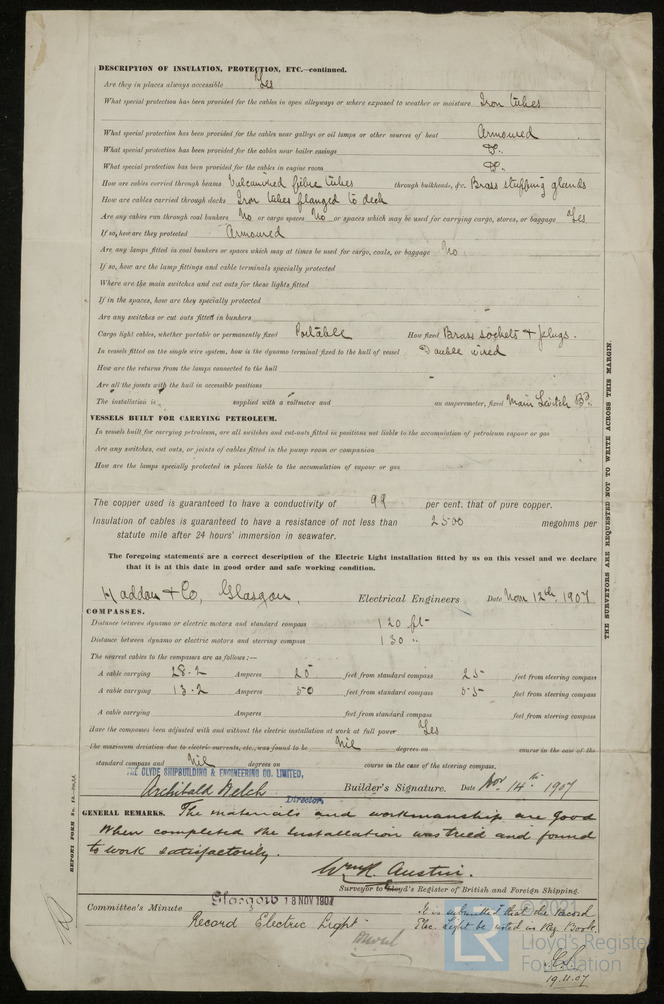 DESCRIPTION OF INSULATION, PROTECTION, ETC.—continued.
Are they in places always accessible Yes
What special protection has been provided for the cables in open alleyways or where exposed to weather or moisture Iron tubes
What special protection has been provided for the cables near galleys or oil lamps or other sources of heat Armoured
What special protection has been provided for the cables near boiler casings Do.
What special protection has been provided for the cables in engine room Do.
How are cables carried through beams Vulcanized fibre tubes through bulkheads, &c. Brass stuffing glands
How are cables carried through decks Iron tubes flanged to deck
Are any cables run through coal bunkers No or cargo spaces No or spaces which may be used for carrying cargo, stores, or baggage Yes
If so, how are they protected Armoured
Are any lamps fitted in coal bunkers or spaces which may at times be used for cargo, coals, or baggage No
If so, how are the lamp fittings and cable terminals specially protected
Where are the main switches and cut outs for these lights fitted
If in the spaces, how are they specially protected
Are any switches or cut outs fitted in bunkers
Cargo light cables, whether portable or permanently fixed Portable How fixed Brass sockets & plugs.
In vessels fitted on the single wire system, how is the dynamo terminal fixed to the hull of vessel Double wired
How are the returns from the lamps connected to the hull
Are all the joints with the hull in accessible positions
The installation is supplied with a voltmeter and an amperemeter, fixed Main Switch Bd.
VESSELS BUILT FOR CARRYING PETROLEUM.
In vessels built for carrying petroleum, are all switches and cut-outs fitted in positions not liable to the accumulation of petroleum vapour or gas
Are any switches, cut outs, or joints of cables fitted in the pump room or companion
How are the lamps specially protected in places liable to the accumulation of vapour or gas
The copper used is guaranteed to have a conductivity of 99 per cent. that of pure copper.
Insulation of cables is guaranteed to have a resistance of not less than 2500 megohms per
statute mile after 24 hours' immersion in seawater.
The foregoing statements are a correct description of the Electric Light installation fitted by us on this vessel and we declare
that it is at this date in good order and safe working condition.
Haddow & Co, Glasgow, Electrical Engineers Date Nov 12th. 1907
COMPASSES.
Distance between dynamo or electric motors and standard compass 120 ft
Distance between dynamo or electric motors and steering compass 130 "
The nearest cables to the compasses are as follows:—
A cable carrying 28.2 Amperes 20 feet from standard compass 25 feet from steering compass
A cable carrying 13.2 Amperes 50 feet from standard compass 55 feet from steering compass
A cable carrying Amperes feet from standard compass feet from steering compass
Have the compasses been adjusted with and without the electric installation at work at full power Yes
The maximum deviation due to electric currents, etc., was found to be Nil degrees on course in the case of the
standard compass and Nil degrees on course in the case of the steering compass.
THE CLYDE SHIPBUILDING & ENGINEERING CO. LIMITED,
Archibald Welch Builder's Signature. Date Nov 14th 1907
Director.
GENERAL REMARKS. The materials and workmanship are good
When completed the Installation was tried and found
to work satisfactorily.
Wm R. Austin.
Surveyor to Lloyd's Register of British and Foreign Shipping.
Committee's Minute Glasgow 18 NOV 1907
Record Electric Light
It is submitted that the Record
Elec. Light be noted in Reg Book.
19.11.07
THE SURVEYORS ARE REQUESTED NOT TO WRITE ACROSS THIS MARGIN.
© 2021
LR
Lloyd's Register
Foundation